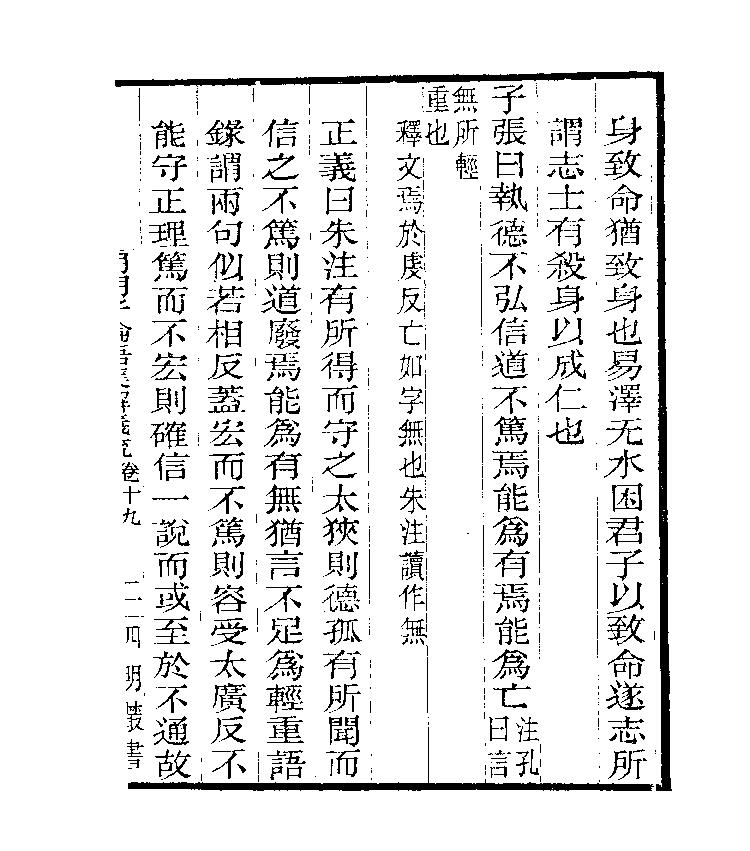 身致命猶致身也易澤无水困君子以致命遂志所
謂志士有殺身以成仁也
子張曰執德不弘信道不篤焉能為有焉能為亡注孔
曰言
無所輕
重也
釋文焉於虔反亡如字無也朱注讀作無
正義曰朱注有所得而守之太狹則德孤有所聞而
信之不篤則道廢焉能為有無猶言不足為輕重語
錄謂兩句似若相反蓋宏而不篤則容受太廣反不
能守正理篤而不宏則確信一說而或至於不通故
論語集解義疏卷十九 二 四明叢書